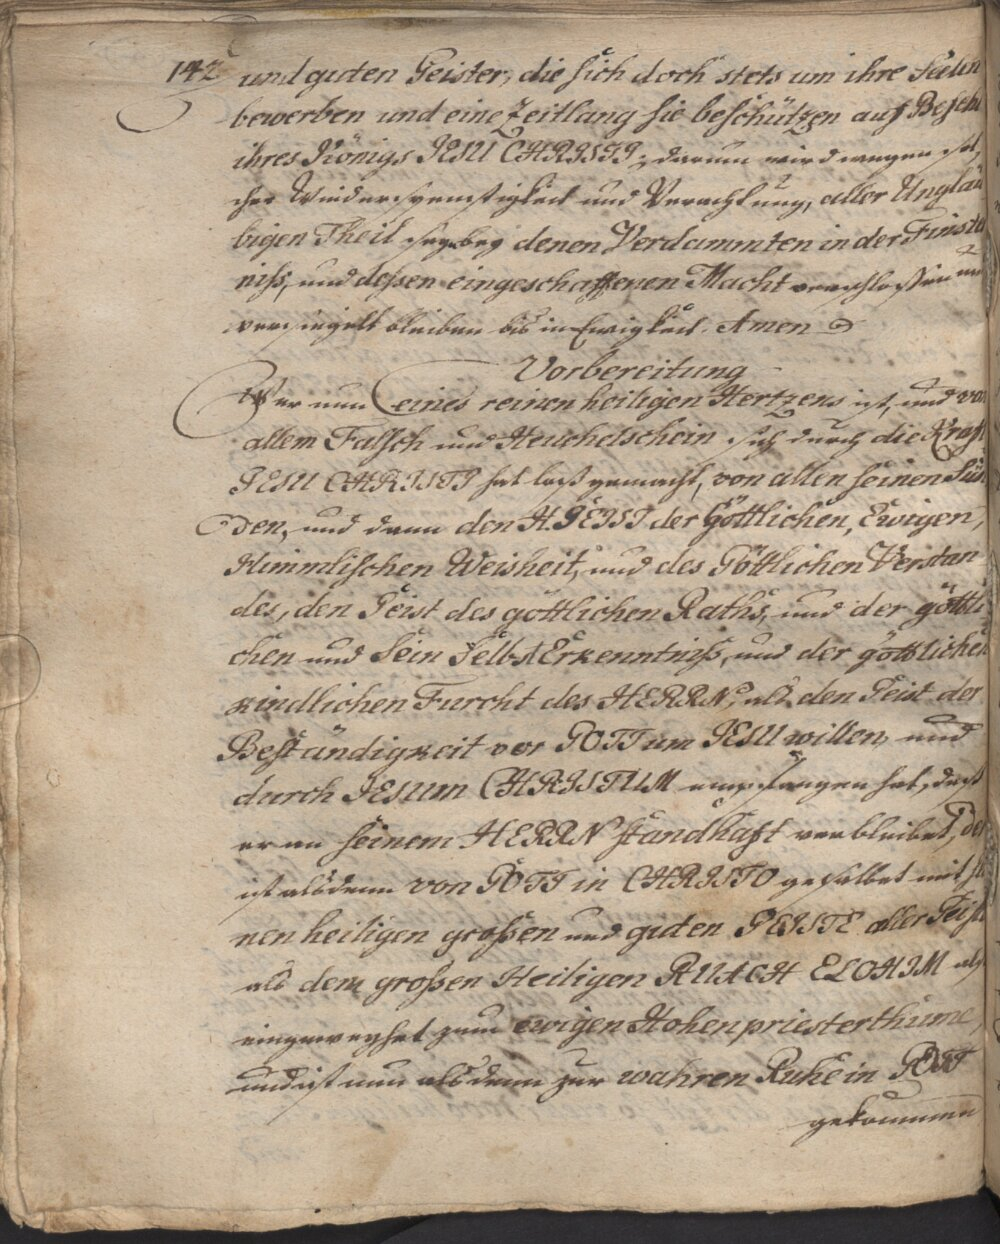 142 und guten Geister, die sich doch stets um ihre Seelen
bewerben und eine Zeitlang sie beschützen auf Befehl
ihres Königs JESU CHRISTI; darum wird wegen sol,
cher Wiederspenstigkeit und Verachtung, aller Ungläu
bigen Theil seyn bey denen Verdammten in der Finster
niß, und deßen eingeschaffenen Macht verschloßen und
versiegelt bleiben bis in Ewigkeit. Amen
Vorbereitung
Wer nun eines reinen heiligen Hertzens ist, und von
allem Falsch und Heuchelschein sich durch die Kraft
JESU CHRISTI hat loß gemacht, von allen seinen Sün
den, und dann den H. GEIST der Göttlichen, Ewigen,
Himmlischen Weisheit, und des Göttlichen Verstan
des, den Geist des göttlichen Raths, und der göttli
chen und Sein Selbst Erkenntniß, und der göttlichen
kindlichen Furcht des HERRN, als den Geist der
Beständigkeit vor GOTT um JESU willen, und
durch JEsum CHRISTUM empfangen hat, daß
er an seinem HERRN standhaft verbleibet, der
ist alsdenn von GOTT in CHRISTO gesalbet mit sei
nen heiligen großen und guten GEISTE aller Geister
als dem großen Heiligen RUACH ELOHIM als
eingeweyhet zum ewigen Hohenpriesterthume,
und ist nun alsdenn zur wahren Ruhe in GOTT
gekommen